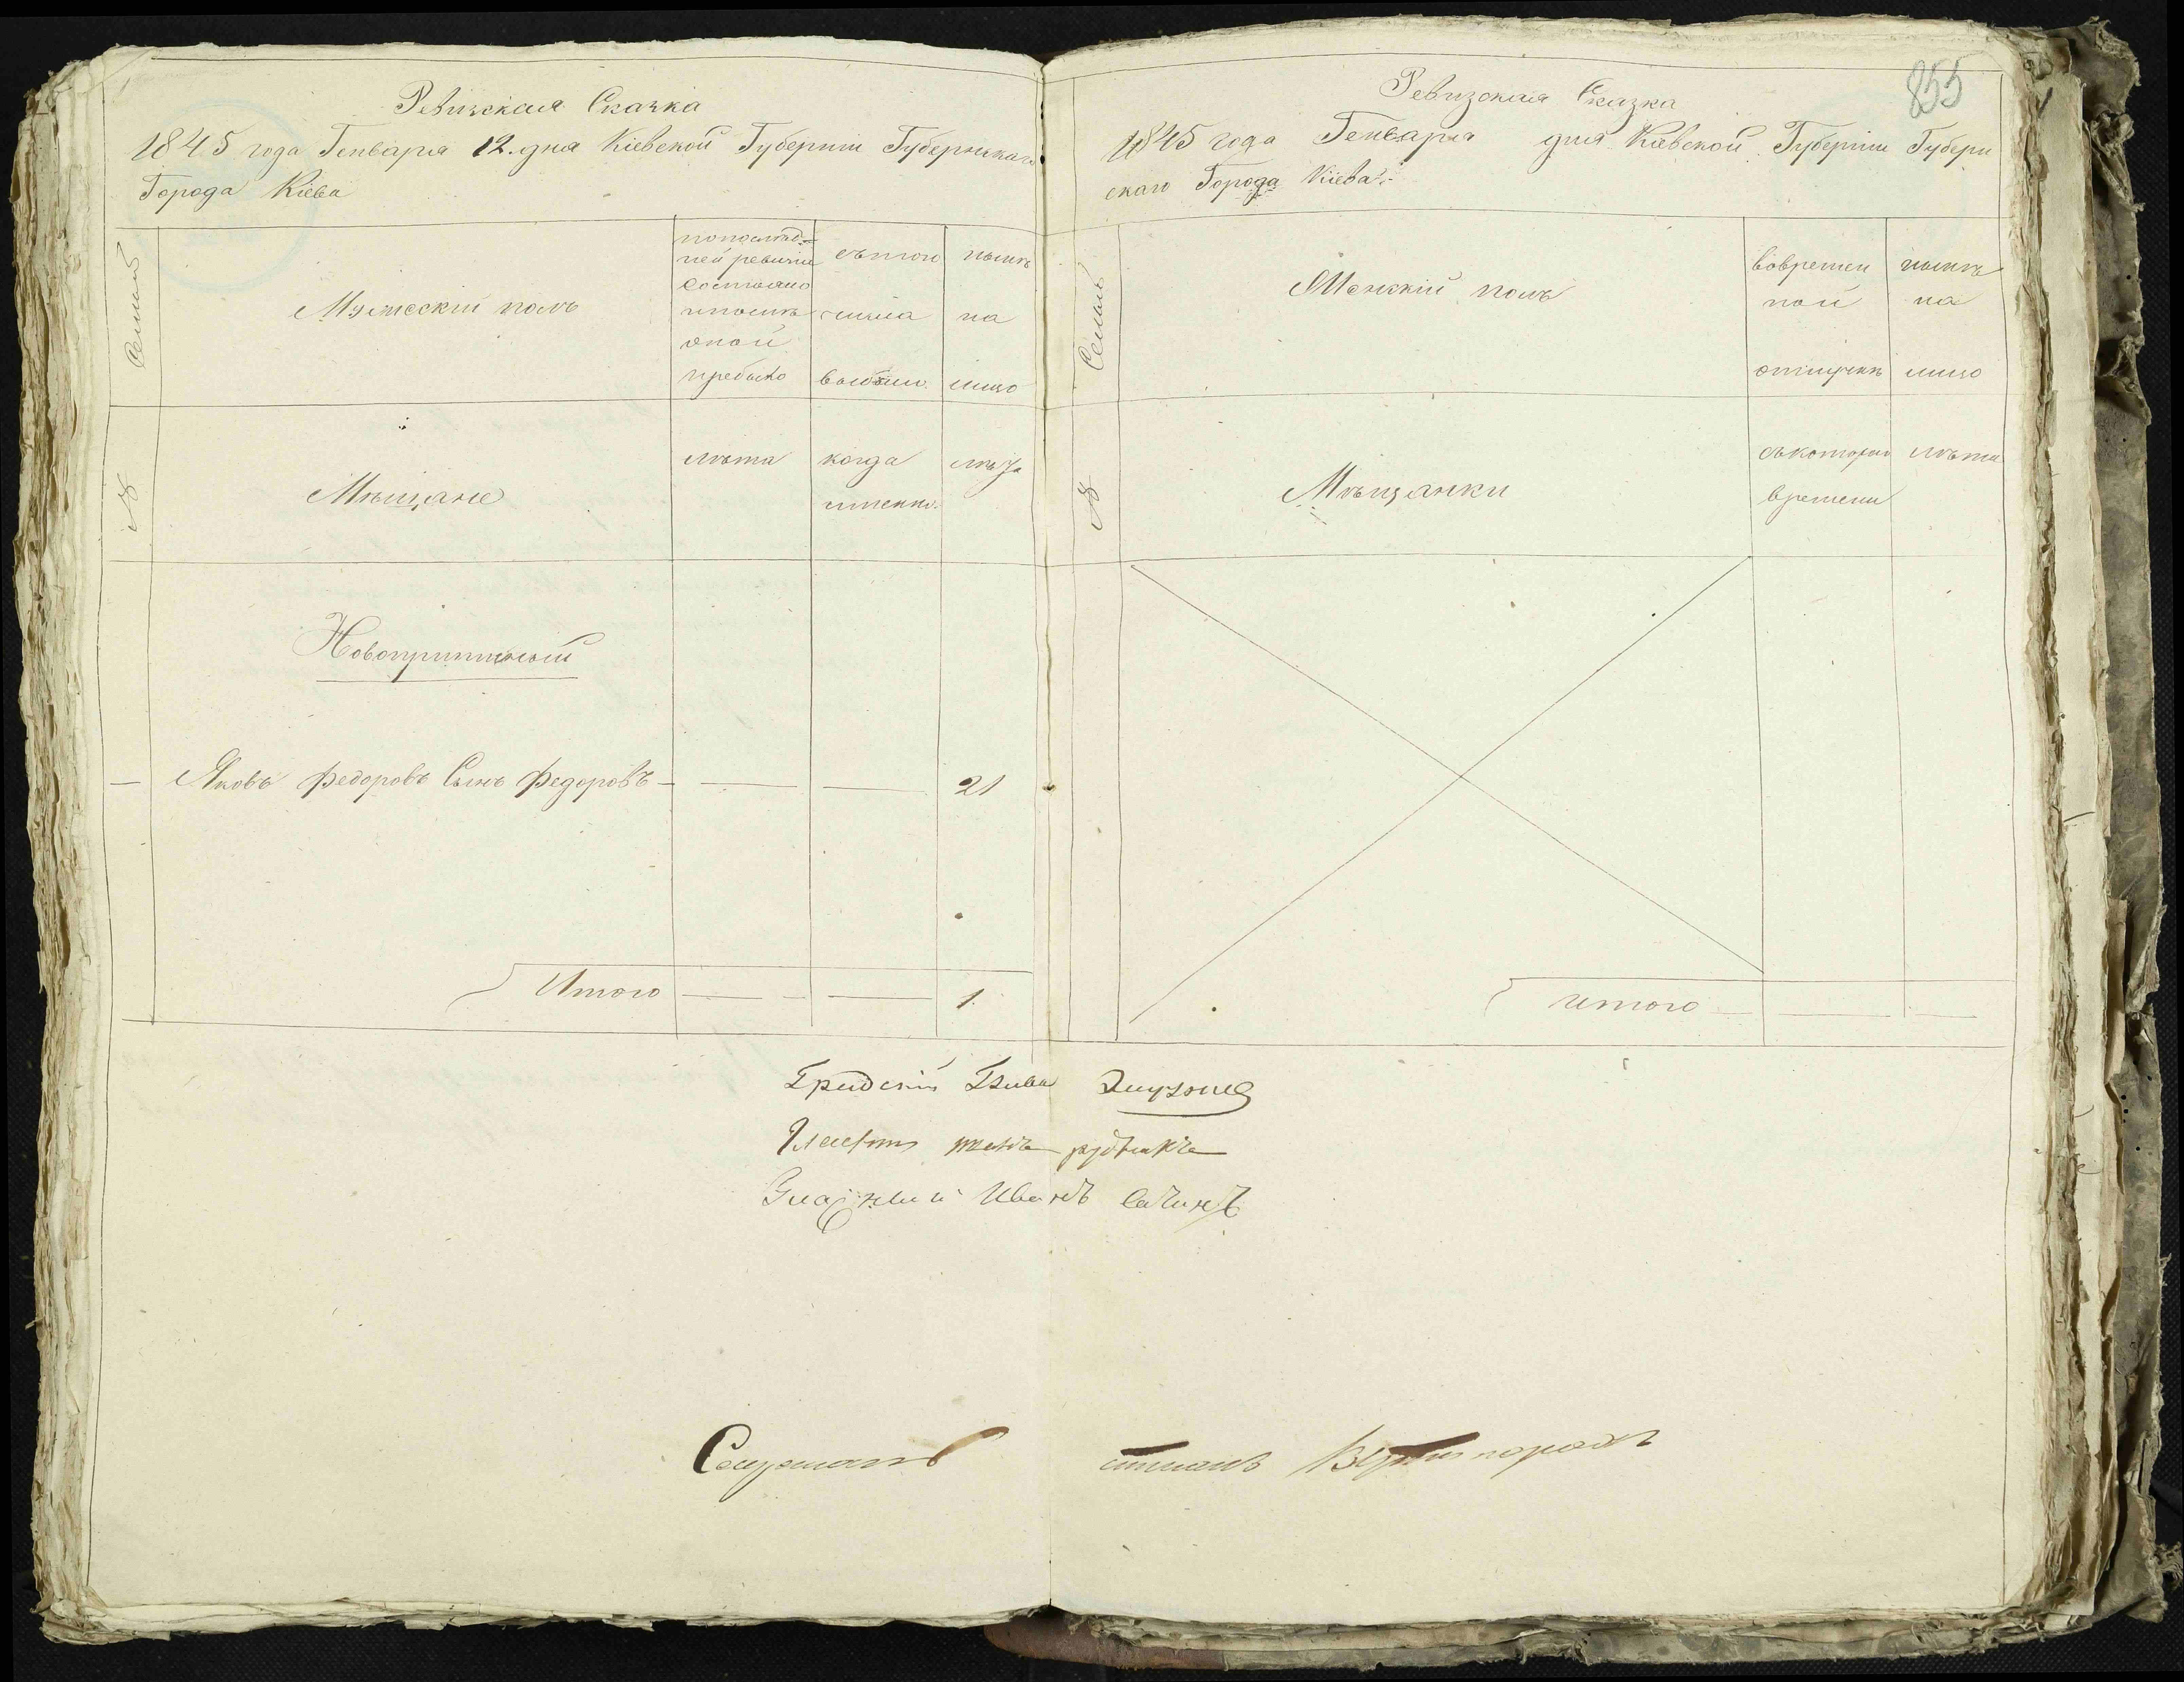 Ревизская Сказка
1845 года Генваря 12. дня Кіевской Губерніи Губернскаго
Города Кіева
Семьи
Мужескій полъ
попослѣд-
ней ревизіи
состояло
ипослѣ
оной
прибыло
съ того
числа
выбыли
нынѣ
на
лицо
№
Мѣщане
лѣта
когда
именно.
лѣта
Новопринятый
— Яковъ Федоровъ Сынъ Федоровъ — — — 21
Итого — — 1.
855
Ревизская Сказка
1845 года Генваря дня Кіевской Губерніи Губерн
скаго Города Кіева
Семьи
Женскій полъ
вовремен
ной
отлучкѣ
нынѣ
на
лицо
№
Мѣщанки
съкотораго
времени
лѣта
итого — — —
Градскій Глава
Гласный
Гласный Иванъ